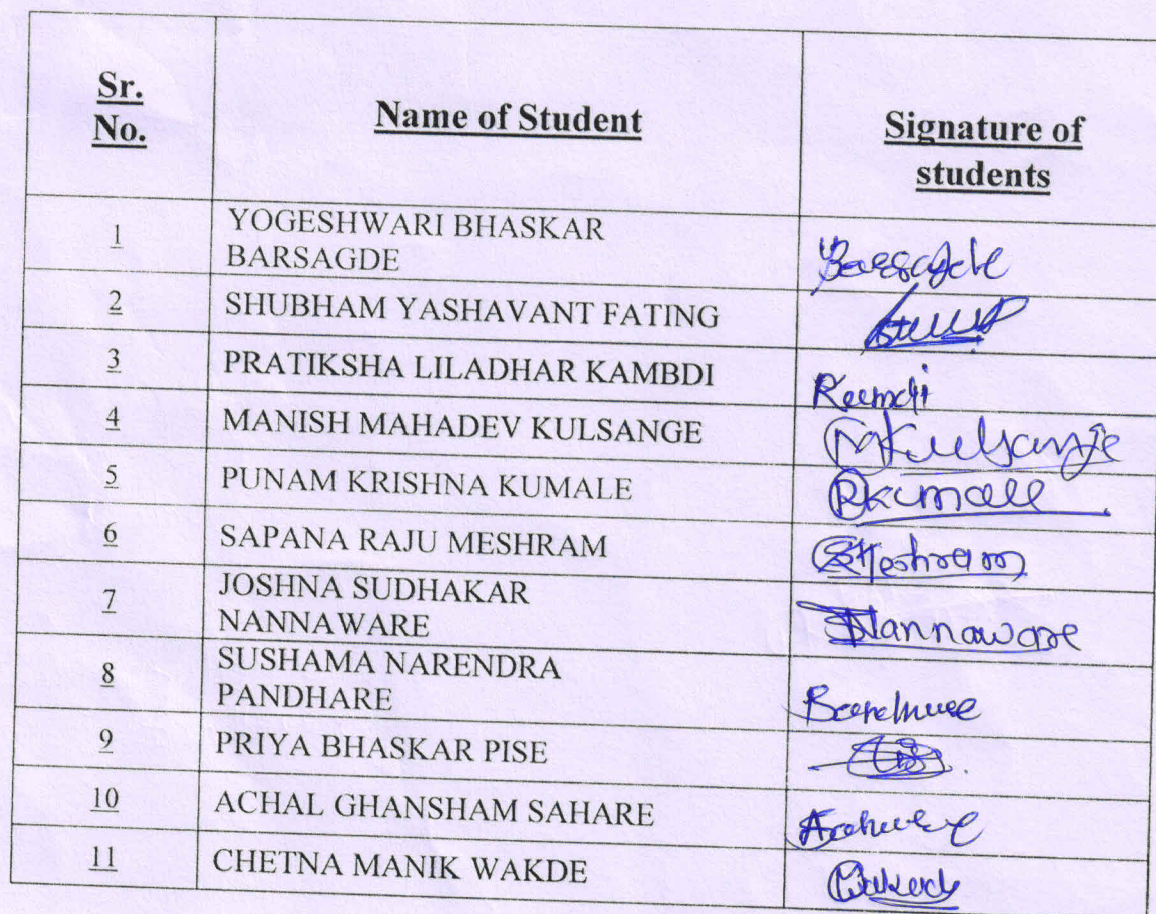 Sr.
No.
Name of Student
Signature of
students
1
YOGESHWARI BHASKAR
BARSAGDE
2
SHUBHAM YASHAVANT FATING
3
PRATIKSHA LILADHAR KAMBDI
4
MANISH MAHADEV KULSANGE
MKulsange
5
PUNAM KRISHNA KUMALE
PKumale
6
SAPANA RAJU MESHRAM
SMeshram
7
JOSHNA SUDHAKAR
NANNAWARE
Nannaware
8
SUSHAMA NARENDRA
PANDHARE
9
PRIYA BHASKAR PISE
10
ACHAL GHANSHAM SAHARE
11
CHETNA MANIK WAKDE